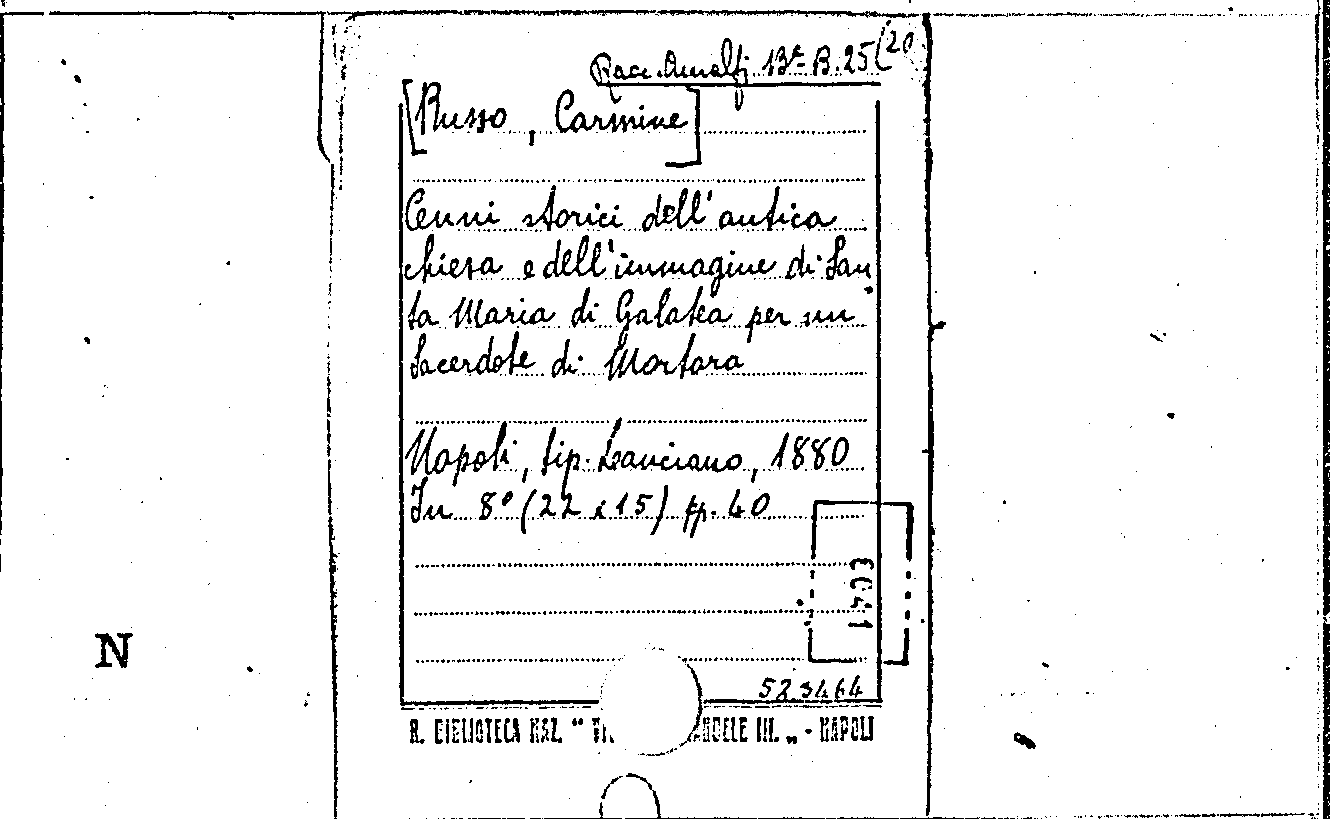 Racc. Amalfi 13ª B. 25(20
[Russo, Carmine]
Cenni storici dell'antica
chiesa e dell'immagine di San
ta Maria di Galatea per un
Sacerdote di Mortara
Napoli, tip. Lanciano, 1880
In 8° (22 x 15) pp. 40
E041
N
523464
R. BIBLIOTECA NAZ. " VI ANUELE III. „ - NAPOLI